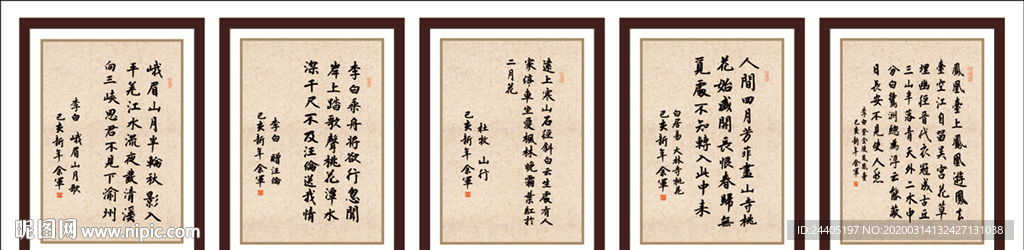 峨眉山月半輪秋影入
平羌江水流夜發清溪
向三峽思君不見下渝州
李白 峨眉山月歌
己亥新年 余軍
李白乘舟將欲行忽聞
岸上踏歌聲桃花潭水
深千尺不及汪倫送我情
李白 贈汪倫
己亥新年 余軍
遠上寒山石徑斜白云生處有人
家停車坐愛楓林晚霜葉紅於
二月花
杜牧 山行
己亥新年 余軍
人間四月芳菲盡山寺桃
花始盛開長恨春歸無
覓處不知轉入此中来
白居易 大林寺桃花
己亥新年 余軍
鳳凰臺上鳳凰遊鳳去
臺空江自留吳宮花草
埋幽徑晉代衣冠成古丘
三山半落青天外二水中
分白鷺洲總為浮云能蔽
日長安不見使人愁
李白登金陵鳳凰臺
己亥新年 余軍
昵图网 www.nipic.com
ID:24405197 NO:20200314132427131038